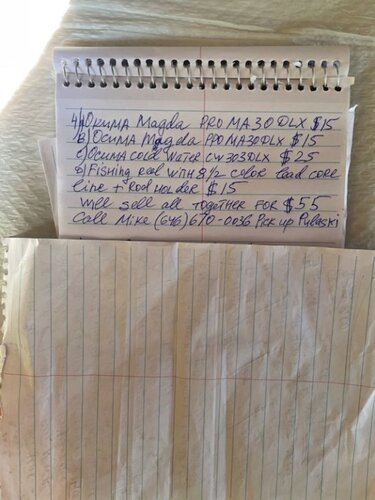 4/A) OKUMA Magda PRO MA30DLX $15
B) OCUMA Magda PRO MA30DLX $15
C) OCUMA COLD WATER CW303DLX $25
D) FISHING reel WITH 8 1/2 COLOR lead core
line + Rod HOLDER $15
Will sell all TOGETHER FOR $55
Call Mike (646) 670-0036 Pick up Pulaski